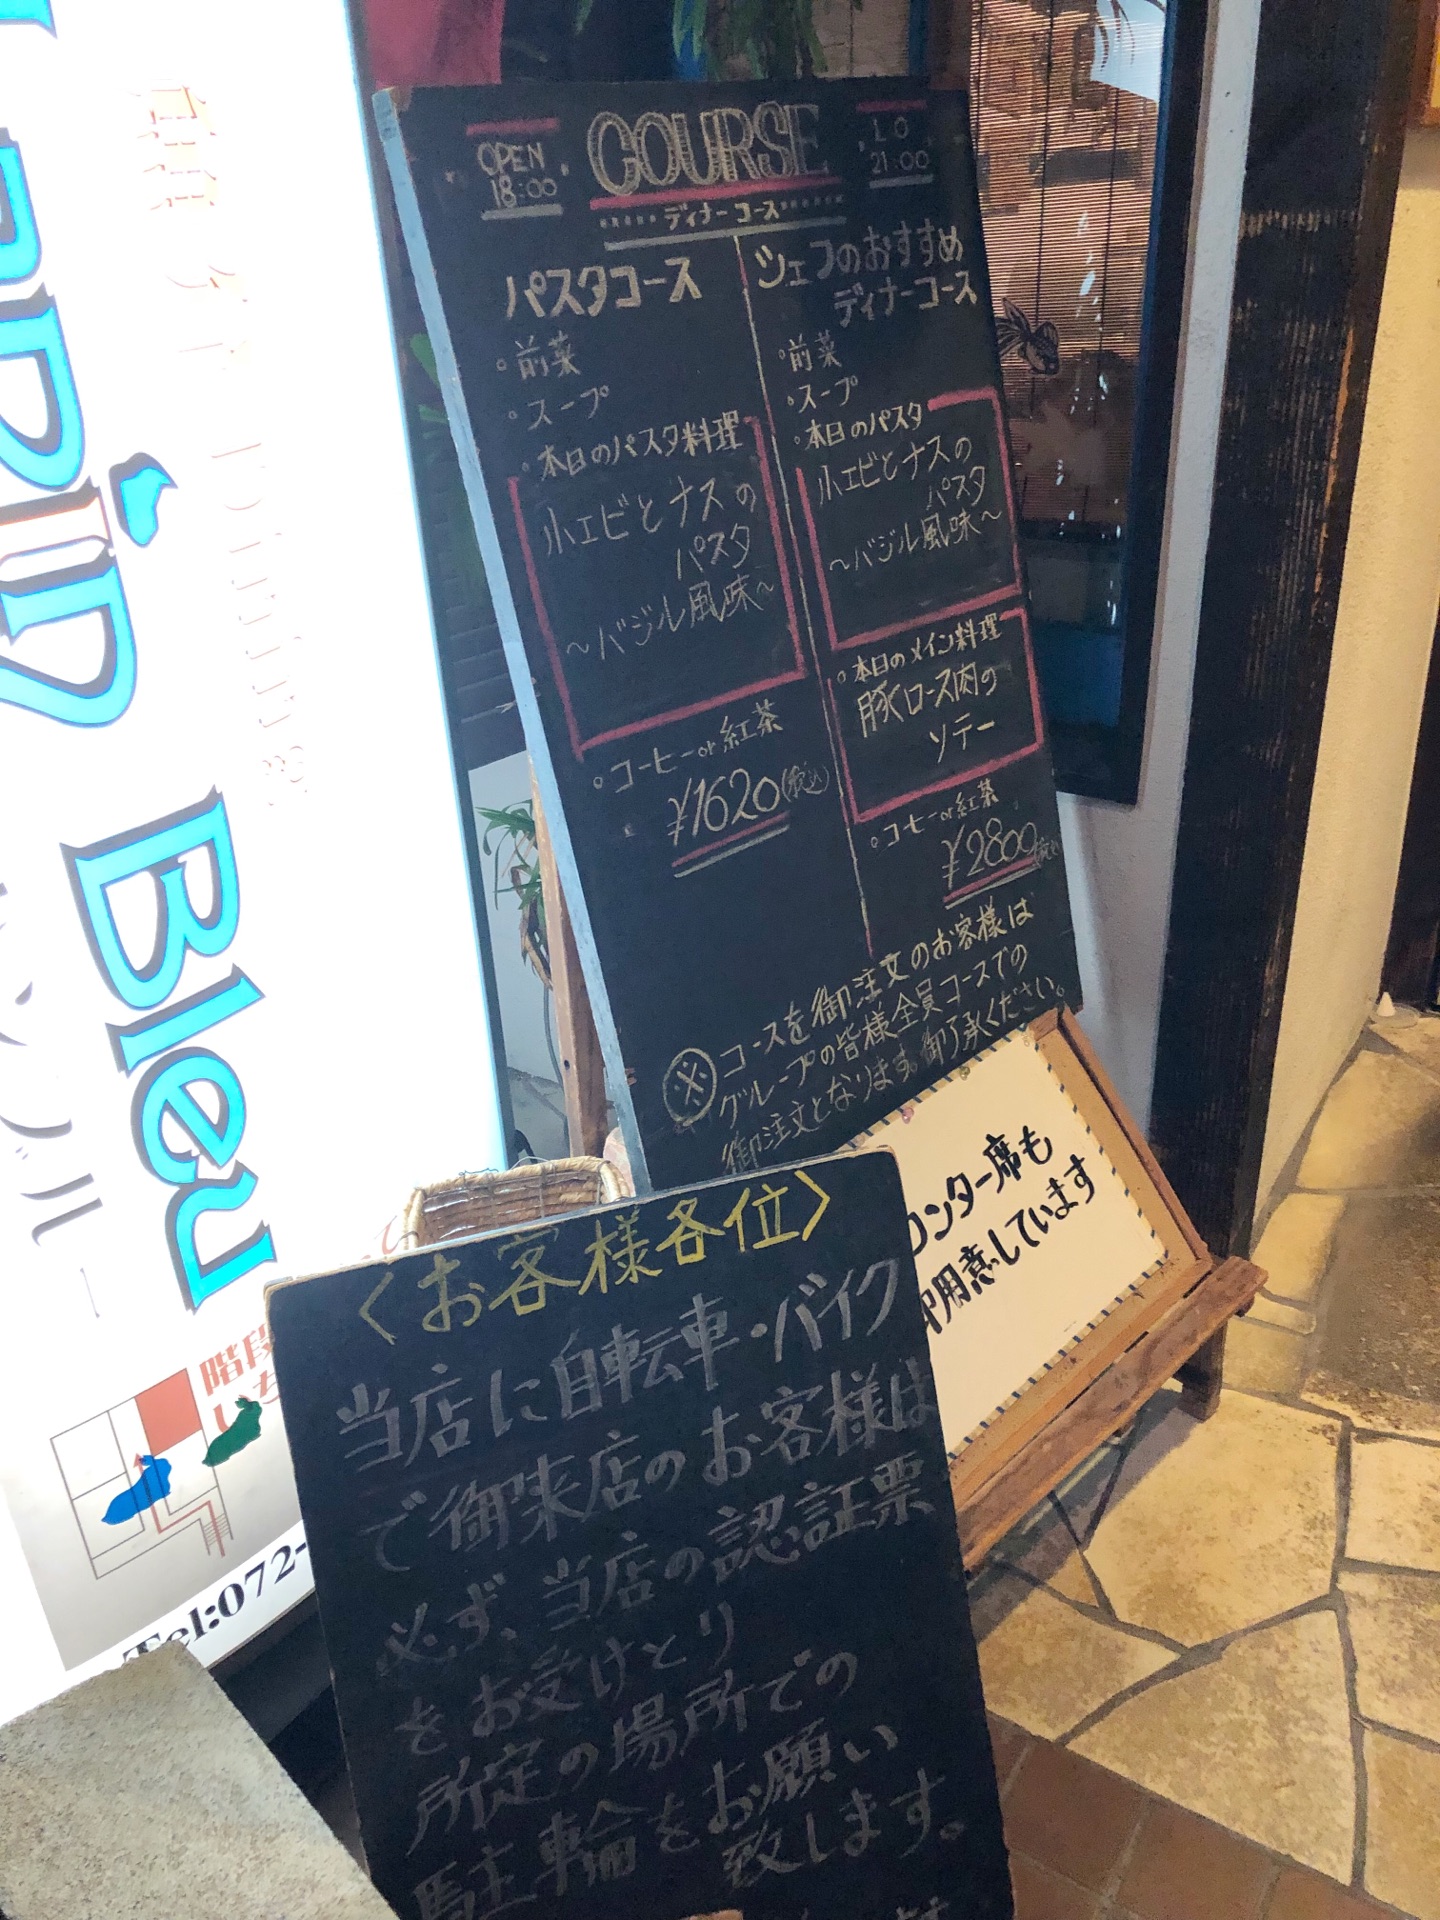 OPEN
18:00
COURSE
ディナーコース
L O
21:00
パスタコース
・前菜
・スープ
・本日のパスタ料理
小エビとナスの
パスタ
〜バジル風味〜
・コーヒーor紅茶
¥1620(税込)
シェフのおすすめ
ディナーコース
・前菜
・スープ
・本日のパスタ
小エビとナスの
パスタ
〜バジル風味〜
・本日のメイン料理
豚ロース肉の
ソテー
・コーヒーor紅茶
¥2800(税込)
※コースを御注文のお客様は
グループの皆様全員コースでの
御注文となります。御了承ください。
カウンター席も
御用意しています
〈お客様各位〉
当店に自転車・バイク
で御来店のお客様は
必ず、当店の認証票
をお受けとり
所定の場所での
駐輪をお願い
致します。
Bleu
Dining
階段
Tel:072-